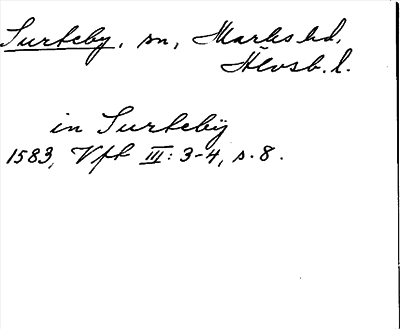 Surteby, sn, Marks hd,
Älvsb. l.
in Surtebÿ
1583, Vfk III: 3-4, s. 8.